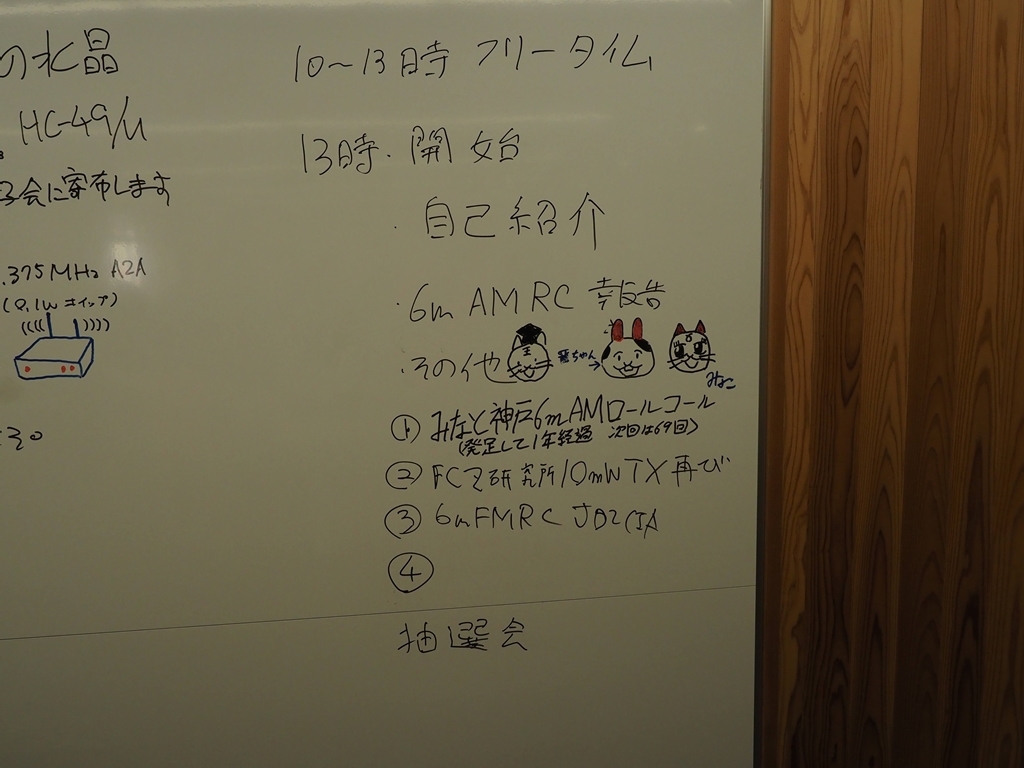 の水晶
HC-49/U
会に寄布します
.375MHz A2A
(0.1W ホイップ)
10〜13時 フリータイム
13時・開始
・自己紹介
・6m AMRC 報告
・その他
ちゃん→
みねこ
① みなと神戸6mAMロールコール
(発足して1年経過 次回は69回)
② FCZ研究所10mWTX再び
③ 6mFMRC
④
抽選会